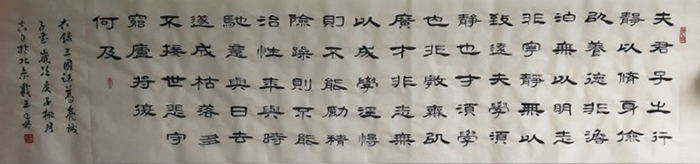 夫君子之行
靜以脩身儉
以養德非澹
泊無以明志
非寧靜無以
致遠夫學須
靜也才須學
也非學無以
廣才非志無
以成學淫慢
則不能勵精
險躁則不能
治性年與時
馳意與日去
遂成枯落多
不接世悲守
窮廬將復
何及
右錄三國諸葛亮誡
子書歲次庚子桃月
吉日於北京戴玉